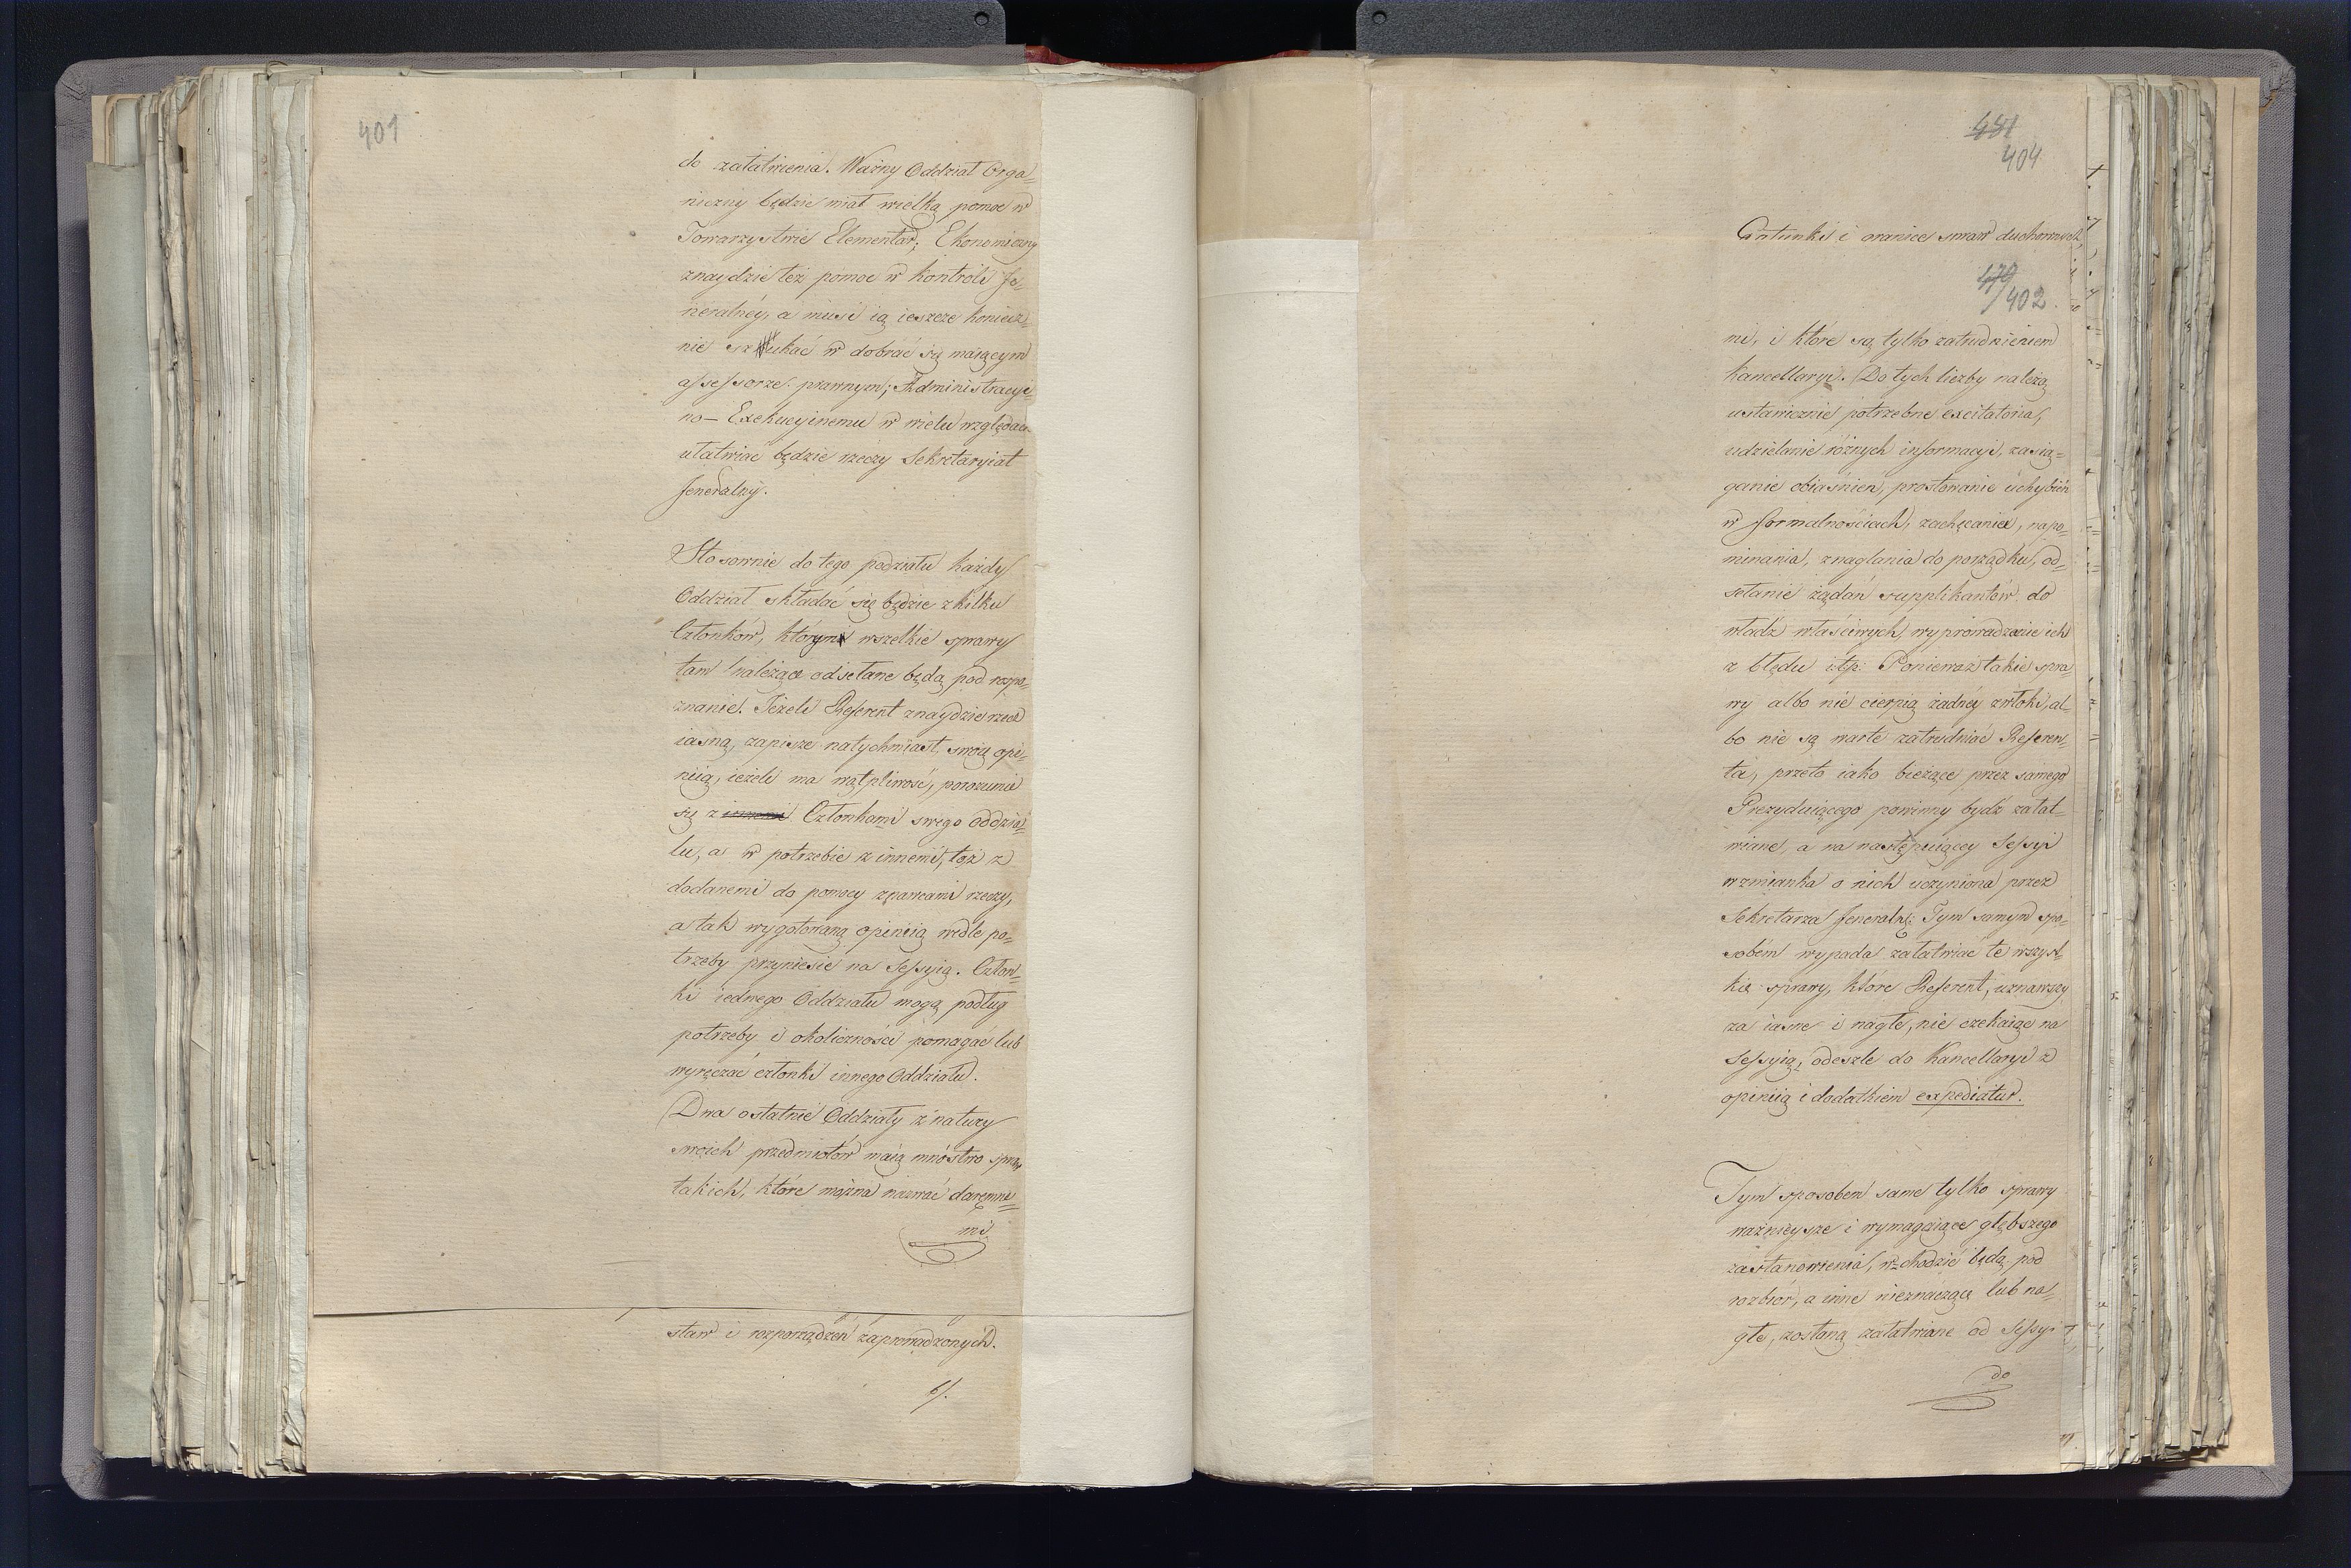 401
do załatwienia. Ważny Oddział Orga=
niczny będzie miał wielką pomoc w
Towarzystwie Elementar; Ekonomiczny
znaydzie też pomoc w Kontroli Je=
neralnéy, a musi ią ieszcze koniecz=
nie szukać w dobrać się maiącym
assessorze prawnym; Administracyi=
no – Exekucyinemu w wielu względach
ułatwiać będzie rzeczy Sekretaryiat
Jeneralny.
Stosownie do tego podziału każdy
Oddział składać się będzie z kilku
Członków, którym wszelkie sprawy
tam należące odsełane będą pod rozpo=
znanie. Jeżeli Referent znaydzie rzecz
iasną, zapisze natychmiast swoię opi=
niią, ieżeli ma wątpliwość, porozumie
się z innemi Członkami swego oddzia=
łu, a w potrzebie z innemi, też z
dodanemi do pomocy znawcami rzeczy,
a tak wygotowaną opiniią wedle po=
trzeby przyniesie na Sessyią. Człon=
ki iednego Oddziału mogą podług
potrzeby i okoliczności pomagać lub
wyręczać członki innego Oddziału.
Dwa ostatnie Oddziały z natury
swoich przedmiotów maią mnóstwo spraw
takich, które można nazwać daremne=
mi
staw i rozporządzeń zaprowadzonych.
6/.
481
404
Gatunki i granice spraw duchownych,
479
402
mi, i które są tylko zatrudnieniem
Kancellaryi. Do tych liczby należą
ustawicznie potrzebne excitatoria,
udzielanie różnych informacyi, zasią=
ganie obiaśnień, prostowanie uchybień
w formalnościach, zachęcania, napo=
minania, znaglania do porządku, od=
sełanie żądań supplikantów do
władz właściwych, wyprowadzanie ich
z błędu itp: Ponieważ takie spra
wy albo nie cierpią żadney zwłoki, al=
bo nie są warte zatrudniać Referen=
ta, przeto iako bieżące przez samego
Prezyduiącego powinny bydź załat=
wiane, a na następuiącey Sessyi
wzmianka o nich uczyniona przez
Sekretarza Jeneraln: Tym samym spo=
sobem wypada załatwiać te wszyst=
kie sprawy, które Referent, uznawszy
za iasne i nagłe, nie czekaiąc na
Sessyią, odeszle do Kancellaryi z
opiniią i dodatkiem expediatur.
Tym sposobem same tylko sprawy
ważnieysze i wymagaiące głębszego
zastanowienia, wchodzić będą pod
rozbiór, a inne nieznaczące lub na=
głe, zostaną załatwiane od Sessyi
do